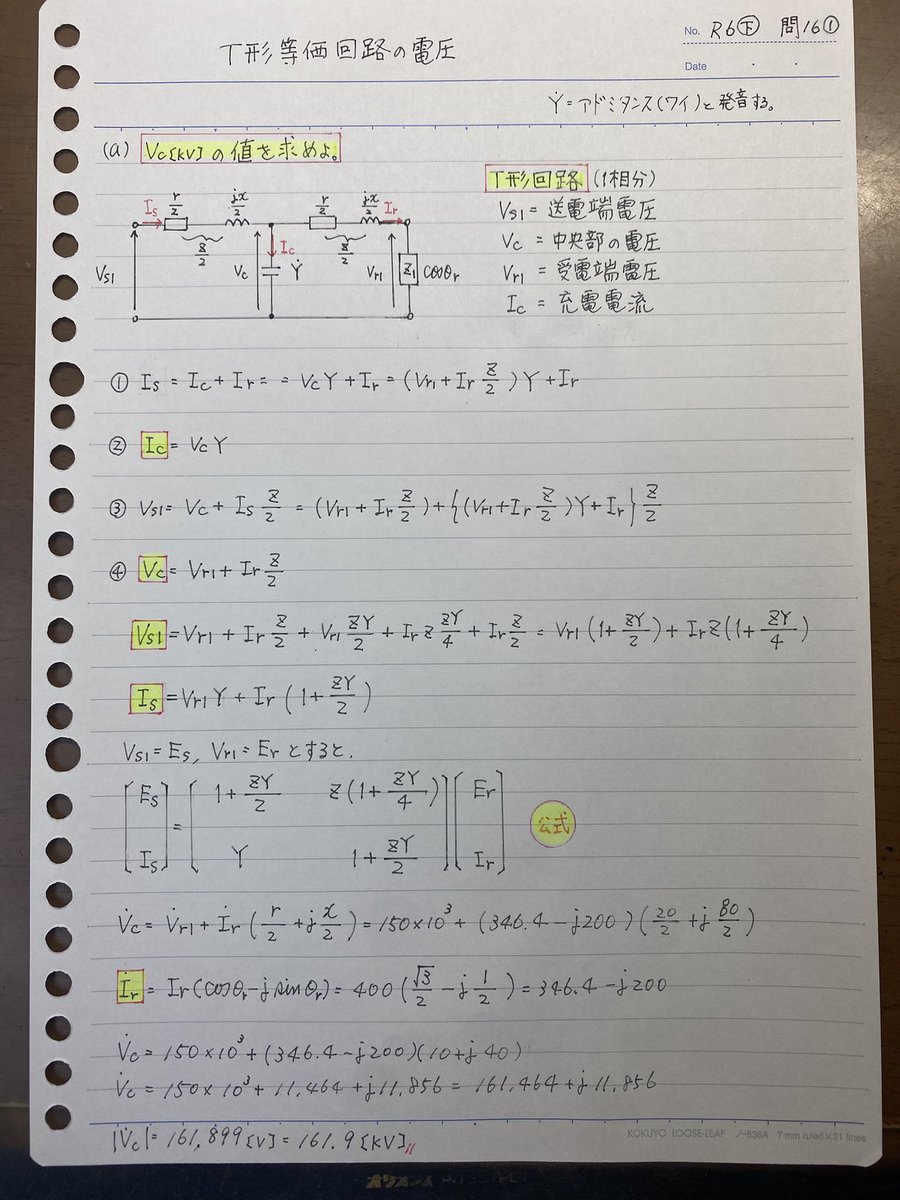 No. R6㊦ 問16①
T形等価回路の電圧
Date
Ẏ=アドミタンス(ワイ)と発音する。
(a) Vc[kV]の値を求めよ。
T形回路(1相分)
Is r/2 jx/2 r/2 jx/2 Ir
Vs1=送電端電圧
Ż/2 Ic Ż/2
Vc=中央部の電圧
Vs1 Vc Ẏ Vr1 Z1 cosθr
Vr1=受電端電圧
Ic=充電電流
① Is = Ic + Ir = = VcY + Ir = (Vr1 + Ir Z/2)Y + Ir
② Ic = VcY
③ Vs1 = Vc + Is Z/2 = (Vr1 + Ir Z/2) + {(Vr1 + Ir Z/2)Y + Ir} Z/2
④ Vc = Vr1 + Ir Z/2
Vs1 = Vr1 + Ir Z/2 + Vr1 ZY/2 + Ir Z ZY/4 + Ir Z/2 = Vr1(1 + ZY/2) + Ir Z(1 + ZY/4)
Is = Vr1Y + Ir(1 + ZY/2)
Vs1 = Es, Vr1 = Er とすると.
[Es] = [1 + ZY/2 Z(1 + ZY/4)] [Er]
公式
[Is] [Y 1 + ZY/2] [Ir]
V̇c = V̇r1 + İr(r/2 + j x/2) = 150×10³ + (346.4 - j200)(20/2 + j 80/2)
İr = Ir(cosθr - j sinθr) = 400(√3/2 - j 1/2) = 346.4 - j200
V̇c = 150×10³ + (346.4 - j200)(10 + j40)
V̇c = 150×10³ + 11,464 + j11,856 = 161,464 + j11,856
|V̇c| = 161,899[V] = 161.9[kV]〃
KOKUYO LOOSE-LEAF ノ-836A 7 mm ruled×31 lines